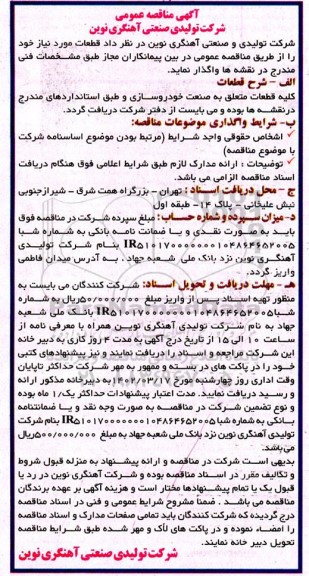 آگهی مناقصه عمومی
شرکت تولیدی صنعتی آهنگری نوین
شرکت تولیدی و صنعتی آهنگری نوین در نظر داد قطعات مورد نیاز خود
را از طریق مناقصه عمومی در بین پیمانکاران مجاز طبق مشخصات فنی
مندرج در نقشه ها واگذار نماید.
الف - شرح قطعات
کلیه قطعات متعلق به صنعت خودروسازی و طبق استانداردهای مندرج
درنقشه ها بوده و می بایست از دفتر شرکت دریافت گردد.
ب- شرایط واگذاری موضوعات مناقصه:
✓ اشخاص حقوقی واجد شرایط (مرتبط بودن موضوع اساسنامه شرکت
با موضوع مناقصه)
✓ توضیحات : ارائه مدارک لازم طبق شرایط اعلامی فوق هنگام دریافت
اسناد مناقصه الزامی می باشد.
ج - محل دریافت اسناد : تهران - بزرگراه همت شرق - شیرازجنوبی
نبش علیخانی - پلاک ۱۴- طبقه اول
د- میزان سپرده و شماره حساب : مبلغ سپرده شرکت در مناقصه فوق
باید به صورت نقدی و یا ضمانت نامه بانکی به شماره شبا
بنام شرکت تولیدی
آهنگری نوین نزد بانک ملی شعبه جهاد ، به آدرس میدان فاطمی
واریز گردد.
هـ - مهلت دریافت و تحویل اسناد: شرکت کنندگان می بایست به
منظور تهیه اسناد پس از واریز مبلغ ۵۰/۰۰۰/۰۰۰ ریال به شماره
شبا بانک ملی شعبه
جهاد به نام شرکت تولیدی آهنگری نوین همراه با معرفی نامه از
ساعت ۱۰ الی ۱۵ از تاریخ درج آگهی به مدت ۴ روز کاری به دبیر خانه
این شرکت مراجعه و اسناد را دریافت نمایند و نیز پیشنهادهای کتبی
خود را در پاکت های در بسته و ممهور به مهر شرکت حداکثر تاپایان
وقت اداری روز چهارشنبه مورخ ۱۴۰۲/۰۳/۱۷ به دبیرخانه مذکور ارائه
و رسید دریافت نمایند. مدت اعتبار پیشنهادات حداکثر یک/۱ ماه بوده
و نوع تضمین شرکت در مناقصه به صورت وجه نقد و یا ضمانتنامه
بانکی به شماره شبا بنام شرکت
تولیدی آهنگری نوین نزد بانک ملی شعبه جهاد به مبلغ ۵۰۰/۰۰۰/۰۰۰ ریال
می باشد.
بدیهی است شرکت در مناقصه و ارائه پیشنهاد به منزله قبول شروط
و تکالیف مقرر در اسناد مناقصه بوده و شرکت آهنگری نوین در رد یا
قبول یک یا تمام پیشنهادها مختار است و هزینه آگهی بر عهده برندگان
مناقصه می باشد . ضمناً مشروح شرایط عمومی و فنی در اسناد مناقصه
درج گردیده که شرکت کنندگان باید تمامی صفحات مدارک و اسناد مناقصه
را امضاء نموده و در پاکت های لاک و مهر شده طبق شرایط مناقصه
تحویل دبیر خانه نمایند.
شرکت تولیدی صنعتی آهنگری نوین